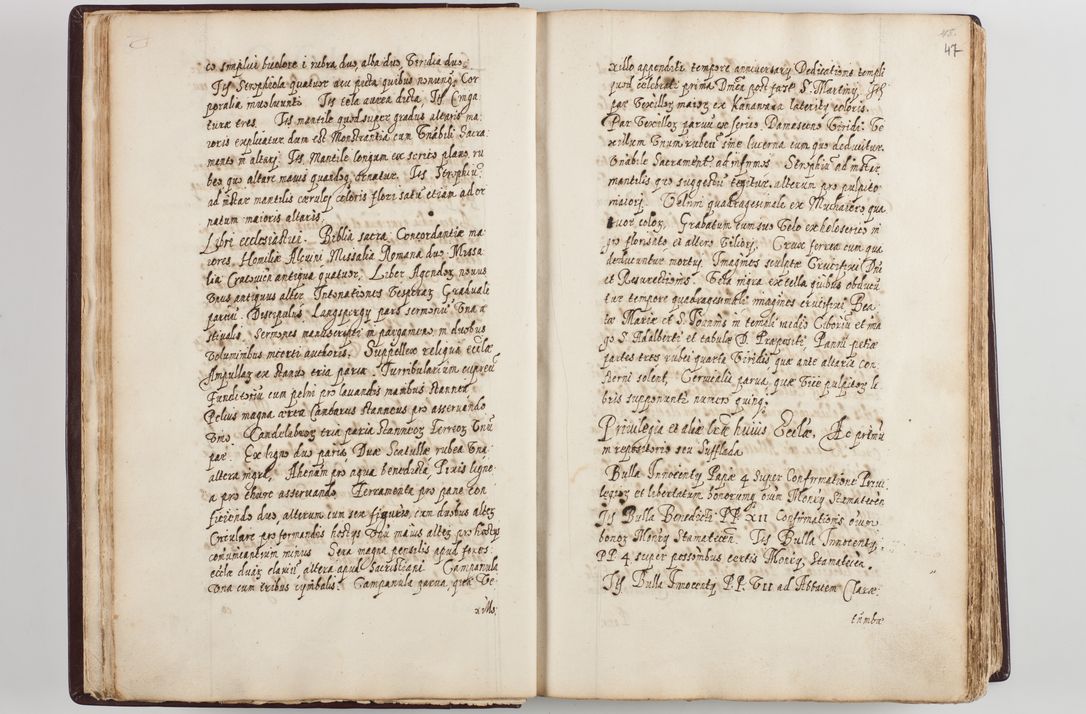 co simplici bicolore i rubra duo, alba duo, viridia duo,
Ite Strophiola quatuor acu picta quibus nonunq Cor
poralia involvunt. Ite tela aurea dicta. Ite Cinga
turae tres. Ite mantile quod super gradus altaris ma
ioris explicatur dum est Monstrantia cum Vnabili Sacra
mento in altari. Ite Mantile longum ex serico plano ru
beo quo altare maius quandoq ornatur. Ite Strophiu
ad instar mantilis caerulei coloris florisatu etiam ad or
natum maioris altaris.
Libri ecclesiastici. Biblia sacra, Concordantiae ma
iores, Homiliae Alcuini Missalia Romana duo Missa
lia Cracovien antiqua quatuor, Liber Agendoz novus
Vnus antiquus alter, Intonationes Vesperaz Graduale
parvu. Discipulus, Langspergy pars sermonu Vna
stivalis. Sermones manuscripti in pargameno in duobus
Voluminibus incerti authoris. Suppellex reliqua eccliae
Ampullaz ex stanno tria paria. Turribularium cupreu
Funditoriu cum pelui pro lavandis manibus stannea
Pelvis magna Cantarus stanneus pro asservando
Vino. Candelabroz tria paria stanneoz ferreoz Vnu
par. Ex ligno duo paria, Duae Scatullae rubea Vna
altera nigra, Ahenum pro aqua benedicta, Pixis ligne
a pro thure asservando. Ferramenta pro pane con
ficiendo duo, alterum cum sex figuris, cum duobus altez
Circulare pro formandis hostys Vnu maius altez pro hostys
comunicantium minus. Sera magna pensilis apud fores
eccliae duaz clavium, altera apud Sacristiam. Campanula
Vna cum tribus cymbalis. Campanula parva, quae Ve
xillo
47
xillo appenditur tempore anniversary Dedicationis templi
quod celebrat prima Dnica post festu S. Martiny. Ite
par Vexilloz maioz ex Kanavaria laterity coloris.
Par Vexilloz parvu ex serico Damasceno Viridi. Ve
xillum Vnum rubeu sine lucerna cum quo deducitur
Vnabile Sacrament. ad infirmos. Strophiu ad instar
mantilis quo suggestu tegitur, alterum pro pulpito
maiori. Velum quadragesimale ex Muchaiero qua
tuor coloz, Grabatum cum suo Velo ex holoserico ni
gro florisato et altero Viliori. Crux ferrea cum qua
deducuntur mortui. Imagines sculptae Crucifixi Dni
et Resurrectionis. Vela nigra ex tella quibus obducu
tur tempore quadragesimali imagines crucifixi Bea
tae Mariae et S. Joannis in templi medio Ciboriu et ima
go S. Adalberti et tabulae D. Praepositi, Panni petiae
partes tres rubei quarta Viridis quae ante altaria con
sterni solent, Cervicalia parva, quae Vice pulpitoz li
bris supponunt numero quinq.
Privilegia et aliae lrae huius Eccliae. Ac primu
in repositorio seu Sufflada
Bulla Innocenty Papae 4 Super Confirmatione Privi
legioz et libertatum bonorumq oium Monry Staniatecen
Ite Bulla Benedicti P.P. XII Confirmationis oium
bonoz Monry Staniatecen. Ite Bulla Innocenty
P.P. 4 super possessionibus certis Monry Staniatecen.
Ite Bulla Innocenty P.P. VII ad Abbatem Claræ
tumbae